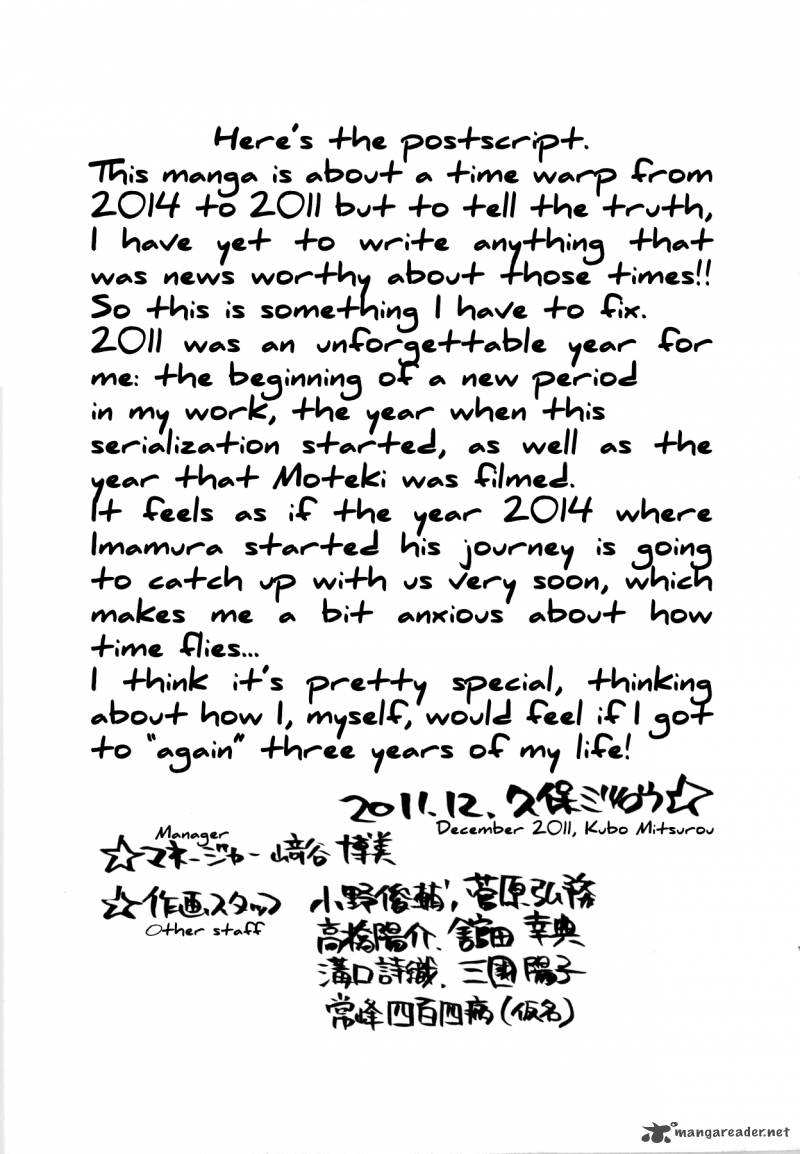 Here's the postscript.
This manga is about a time warp from
2014 to 2011 but to tell the truth,
I have yet to write anything that
was news worthy about those times!!
So this is something I have to fix.
2011 was an unforgettable year for
me: the beginning of a new period
in my work, the year when this
serialization started, as well as the
year that Moteki was filmed.
It feels as if the year 2014 where
Imamura started his journey is going
to catch up with us very soon, which
makes me a bit anxious about how
time flies...
I think it's pretty special, thinking
about how I, myself, would feel if I got
to "again" three years of my life!
2011.12. 久保ミツロウ☆
December 2011, Kubo Mitsurou
Manager
☆マネージャー 﨑谷 博美
☆作画スタッフ 小野俊輔, 菅原弘務
Other staff
高橋陽介、舘田 幸典
溝口詩織、三國 陽子
常峰四百四病(仮名)
mangareader.net